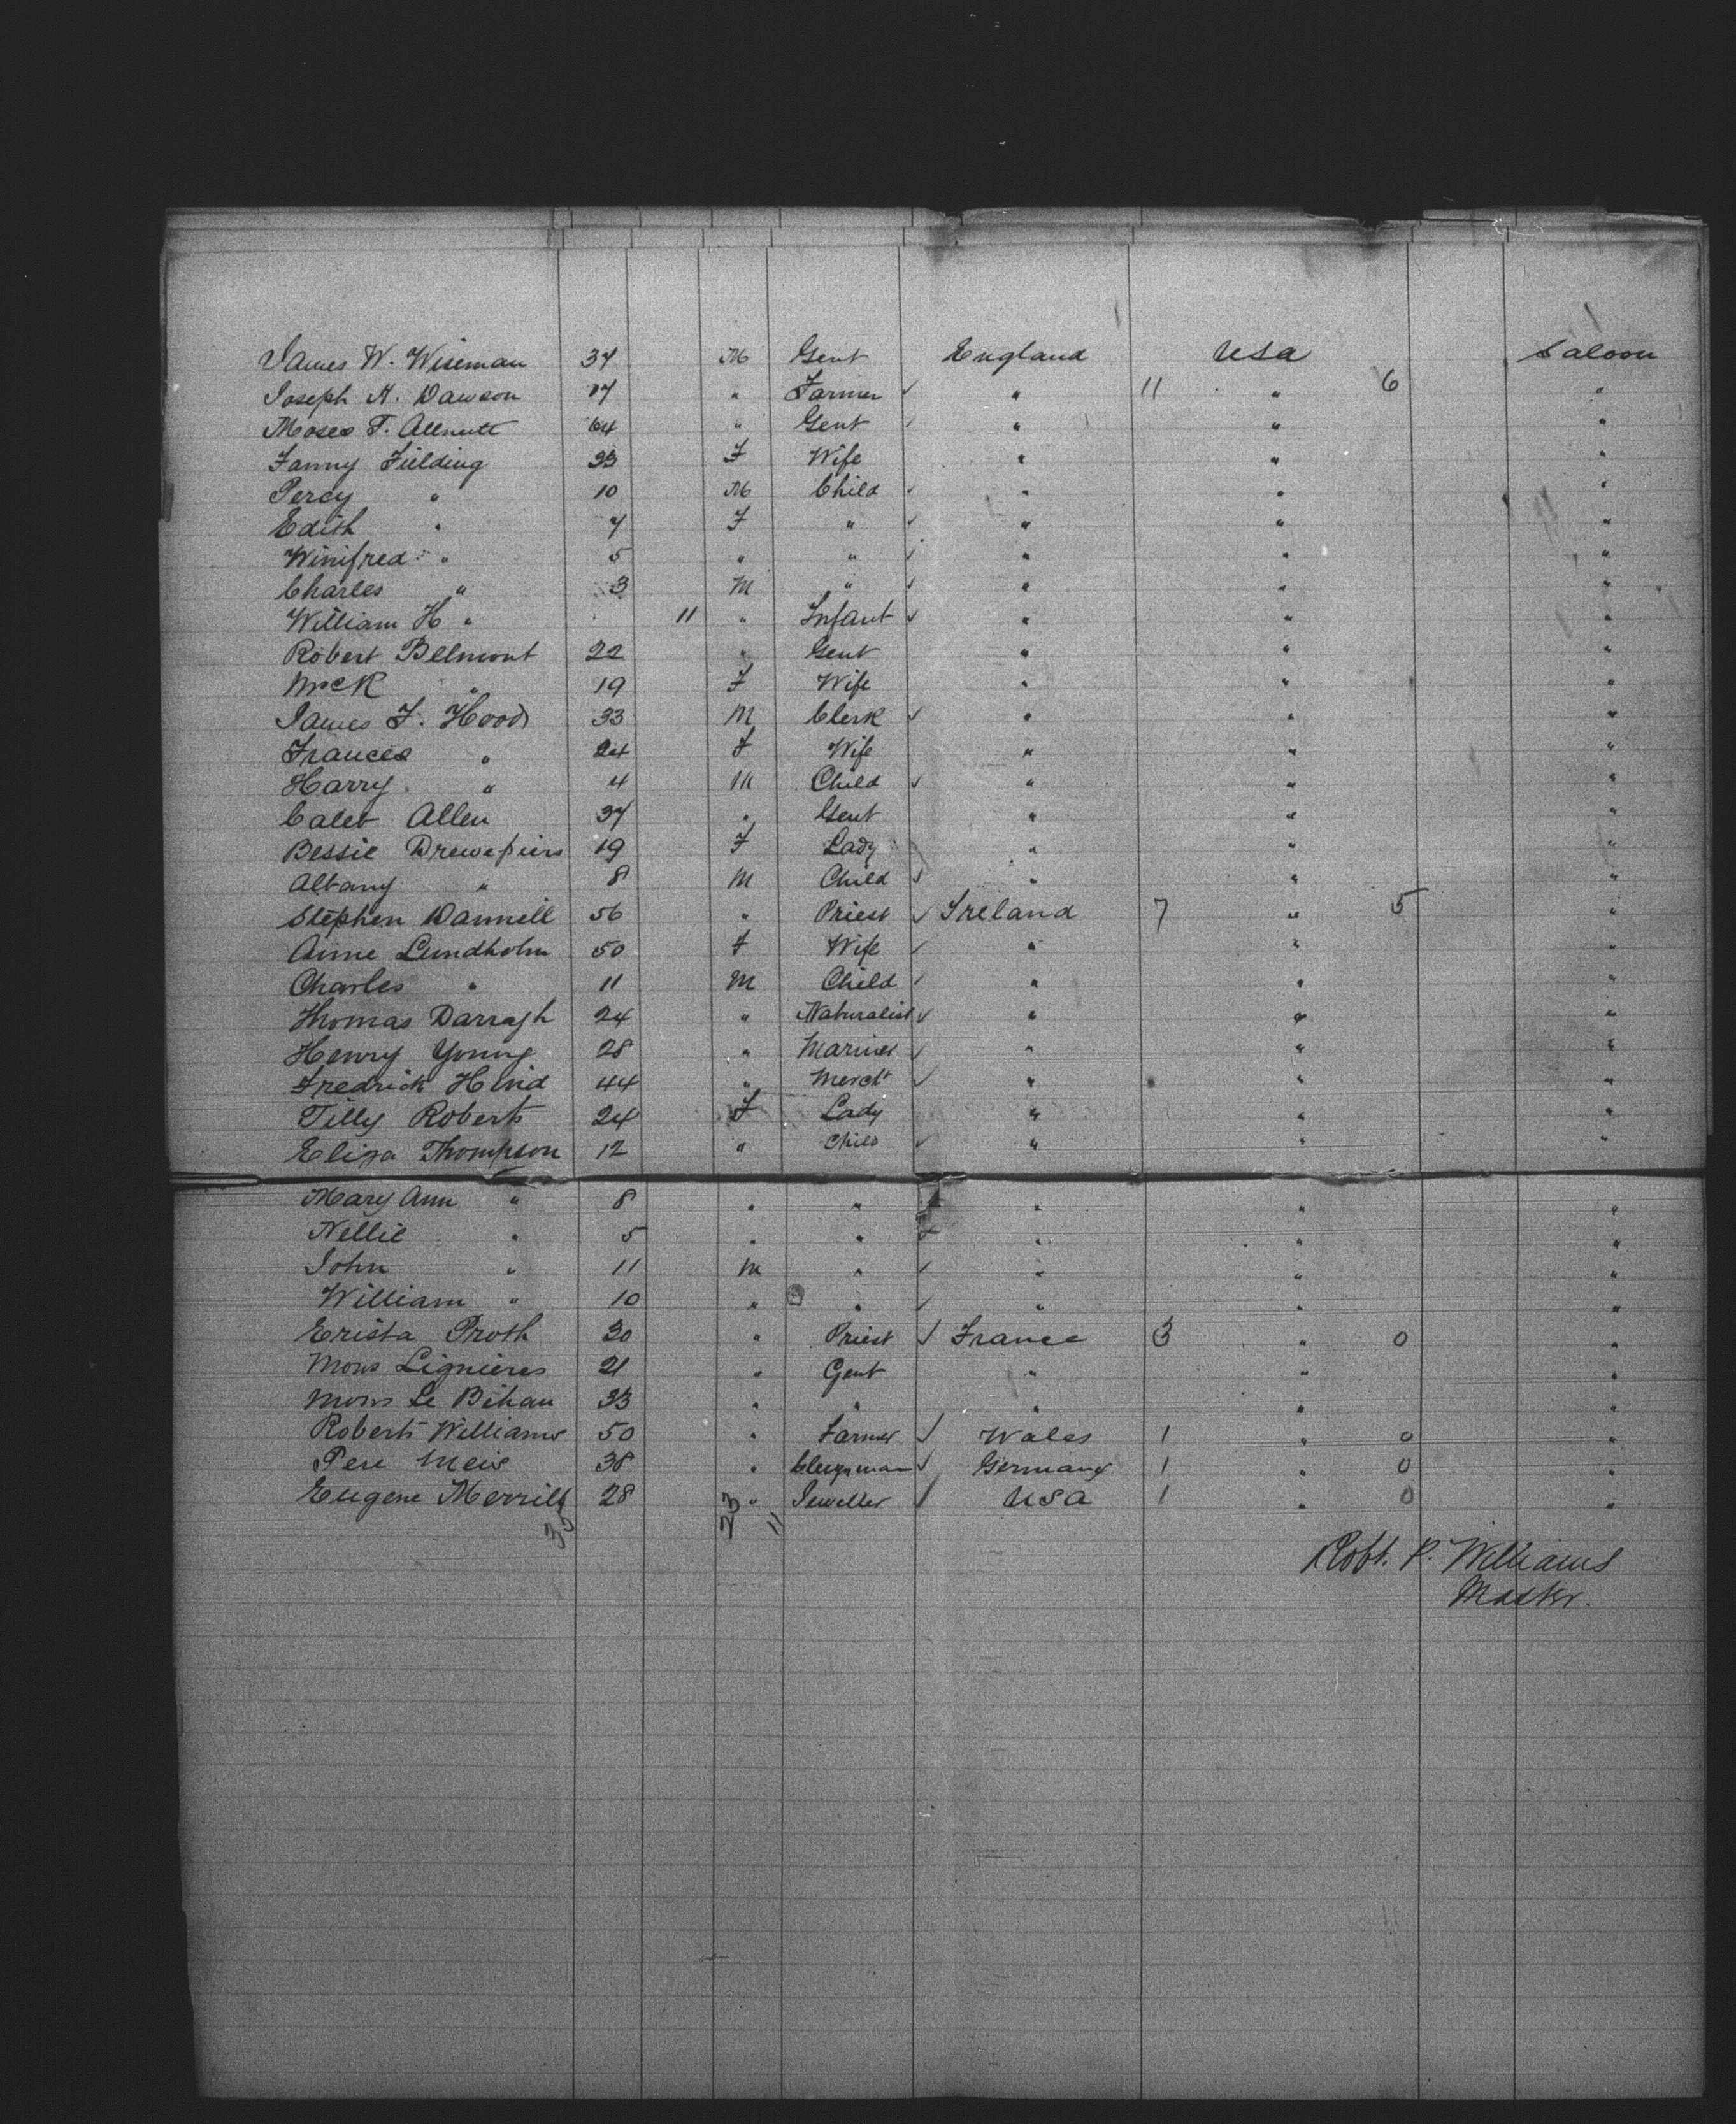 James W. Wiseman 34 M Gent England USA Saloon
Joseph H. Dawson 17 " Farmer ✓ " 11 " 6 "
Moses T. Allnutt 64 " Gent " " "
Fanny Fielding 33 F Wife " " "
Percy " 10 M Child ✓ " " "
Edith " 7 F " ✓ " " "
Winifred " 5 " " ✓ " " "
Charles " 3 M " ✓ " " "
William H " 11 " Infant ✓ " " "
Robert Bellmont 22 " Gent " " "
" 19 F Wife " " "
James F. Hood 33 M Clerk ✓ " " "
Frances " 24 F Wife " " "
Harry " 4 M Child ✓ " " "
Caleb Allen 37 " Gent " " "
Bessie 19 F Lady " " "
Albany " 8 M Child ✓ " " "
Stephen Dannell 56 " Priest ✓ Ireland 7 " 5 "
Anne Lundholm 50 F Wife ✓ " " "
Charles " 11 M Child ✓ " " "
Thomas Darragh 24 " Naturalist ✓ " " "
Henry Young 28 " Mariner ✓ " " "
Fredrick 44 " Mercht ✓ " " "
Tilly Roberts 24 F Lady " " "
Eliza Thompson 12 " Child ✓ " " "
Mary Ann " 8 " " " " "
Nellie " 5 " " " " "
John " 11 M " ✓ " " "
William " 10 " " ✓ " " "
Erista Proth 30 " Priest ✓ France 3 " 0 "
Mons Lignieres 21 " Gent " " "
Mons Le Bihan 33 " " " " "
Roberts Williams 50 " Farmer ✓ Wales 1 " 0 "
Pere Meis 38 " Clergyman ✓ Germany 1 " 0 "
Eugene Merrill 28 " Jeweller ✓ USA 1 " 0 "
35 23 11
Robt. P. Williams
Master.